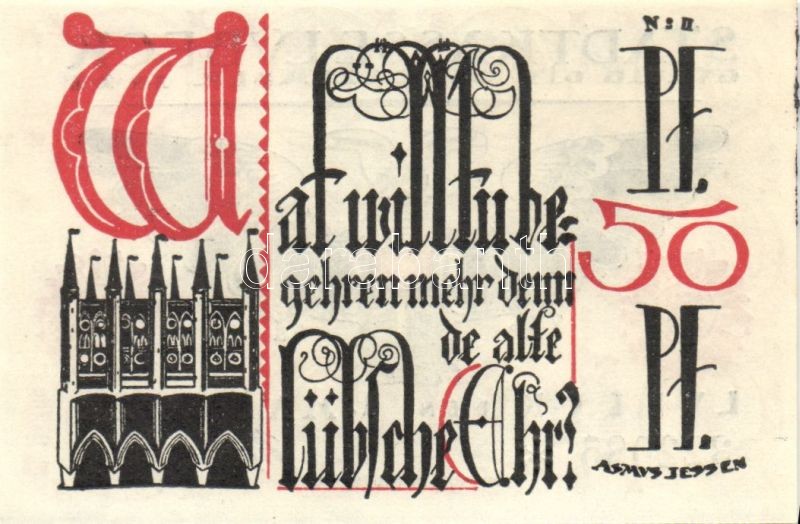 Wat willtu be=
gehren mehr denn
de alte
lübsche Ehr?
N: II
PF.
50
PF.
ASMVS JESSEN
darabanth